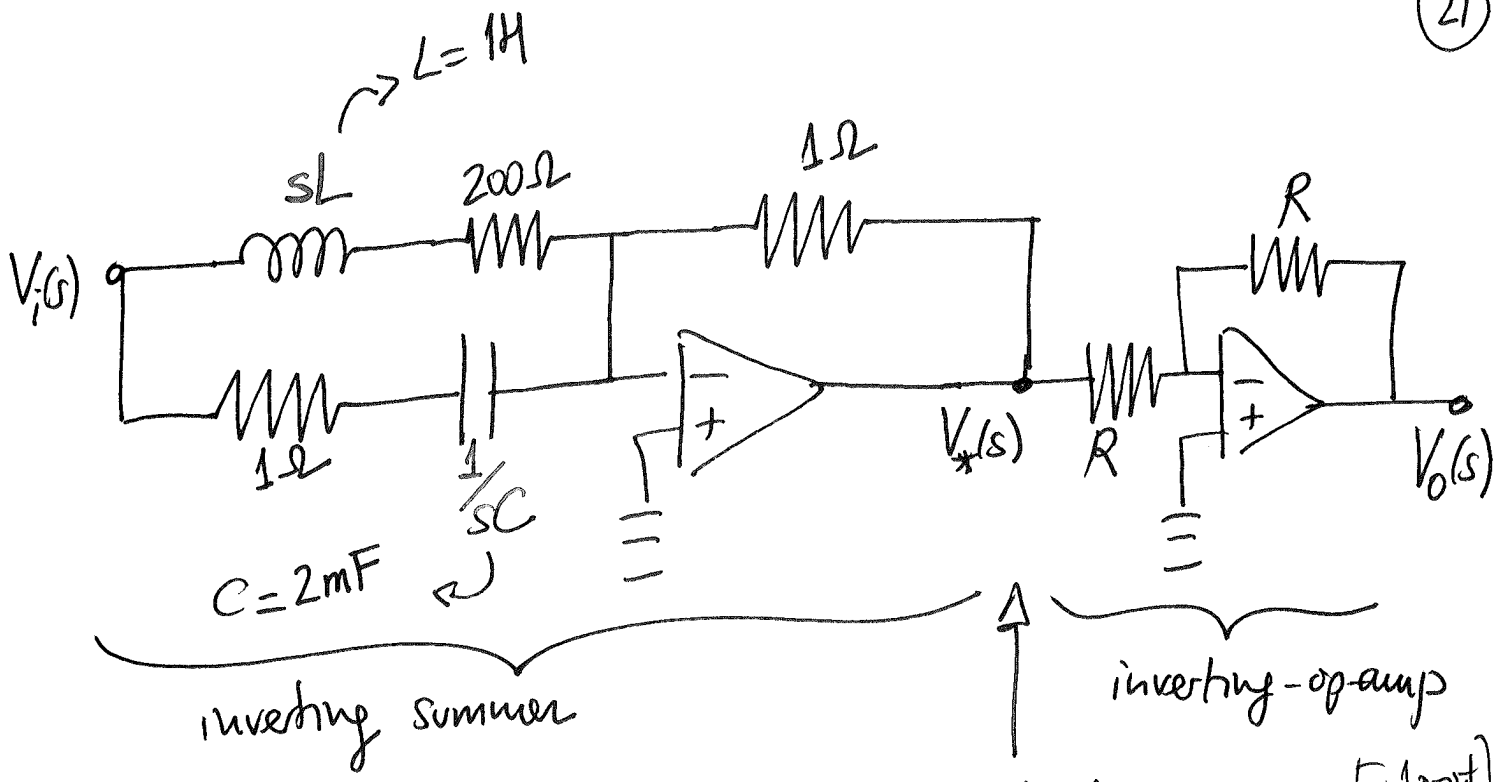 21
L = 1H
sL
200Ω
1Ω
R
Vi(s)
1Ω
1/sC
−
+
V*(s)
R
−
+
Vo(s)
C = 2mF
inverting summer
inverting-op-amp